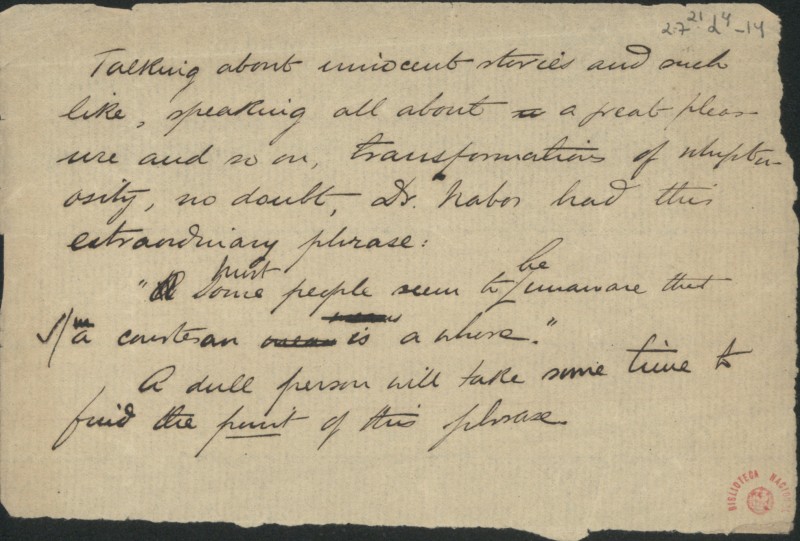 27 21 d4 -14
Talking about innocent stories and such
like, speaking all about a great pleas-
ure and so on, transformations of
osity, no doubt, Dr. Nabos had this
extraordinary phrase:
must be
"Some people seem to unaware that
a courtesan is a whore."
A dull person will take some time to
find the point of this phrase.
BIBLIOTECA NACIO